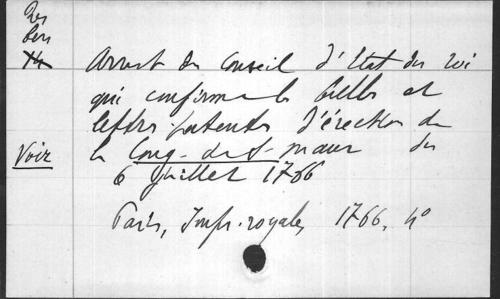 Res
Arrest du Conseil d'Etat du roi
qui confirme les bulles et
lettres patentes d'érection de
Voir la Cong. de St maur du
6 Juillet 1766
Paris, Impr. royale, 1766, 4°